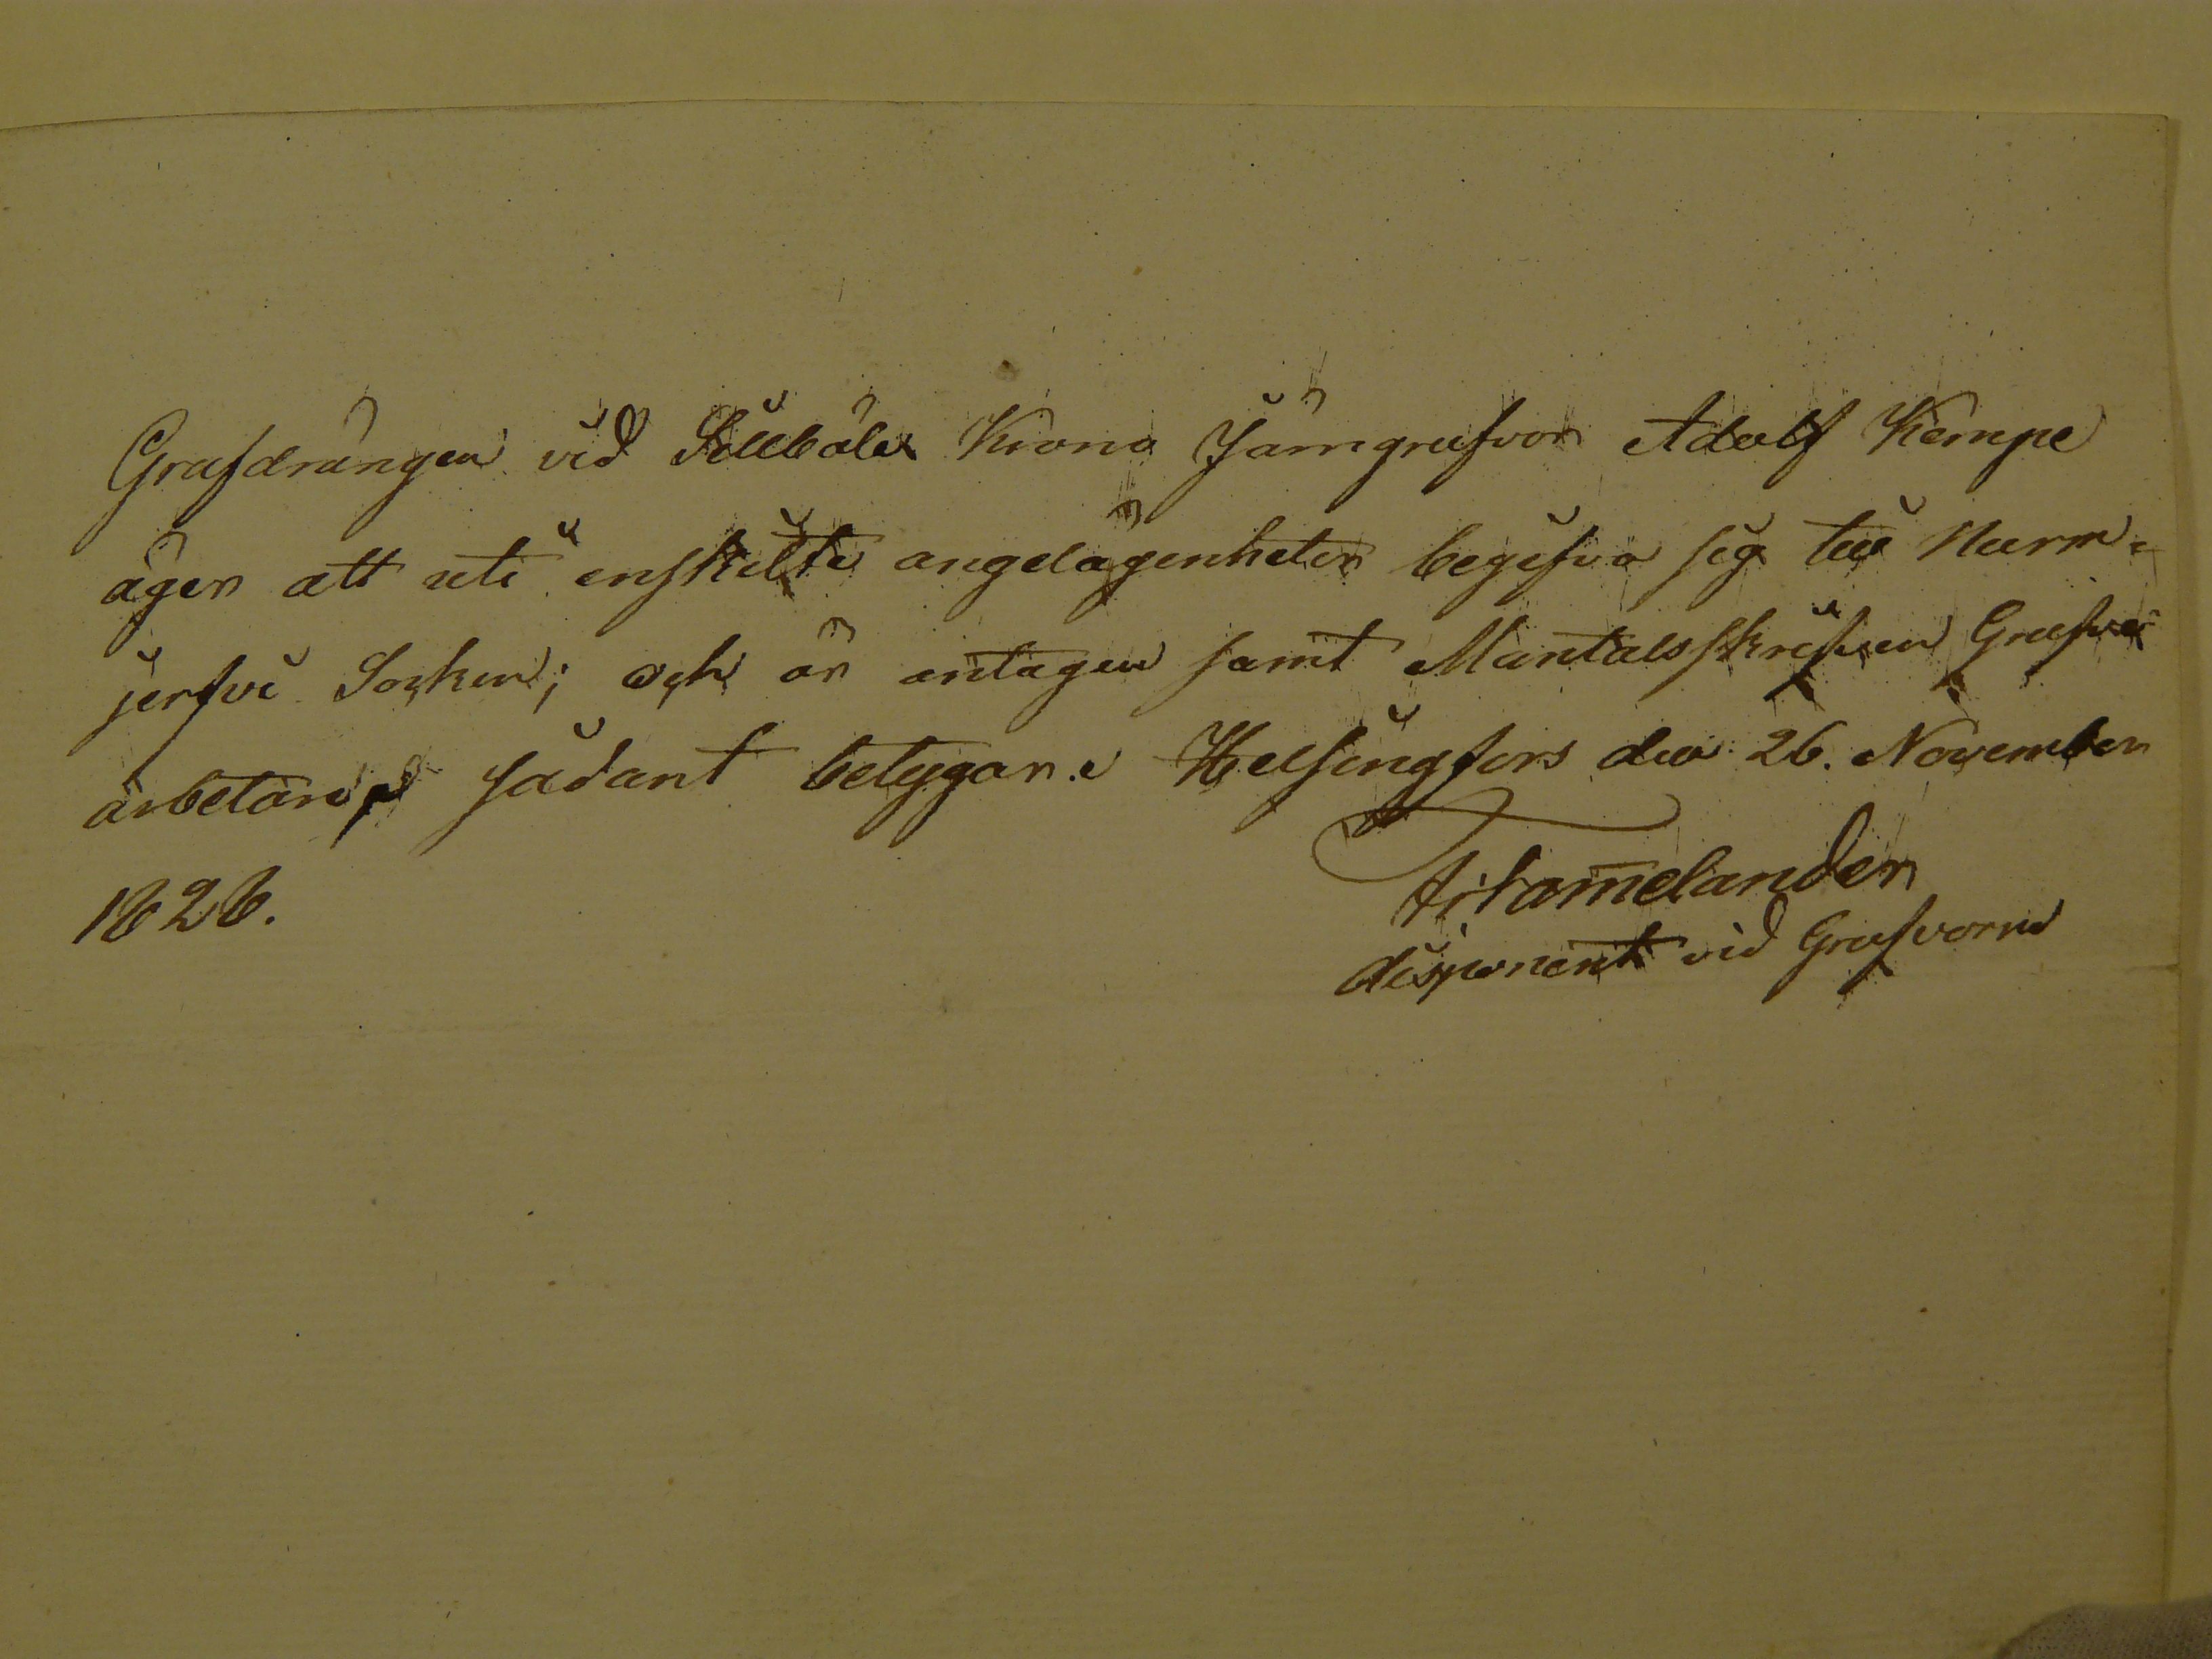 Grufdrängen vid Sillböle Krono Järngrufvor Adolf Kempe
äger att uti enskilte angelägenheter begifva sig till Nurm=
jerfvi Sockn; och är antagen samt Mantalsskrifven Grufve
arbetare, sådant betygar. Helsingfors den 26. November
1826.
disponent vid Grufvorne